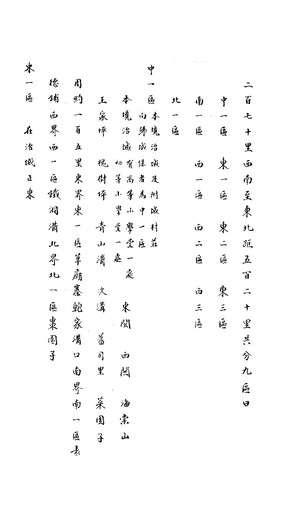 二百七十里西南至東北距五百二十里共分九區曰
中一區 東一區 東二區 東三區
南一區 西一區 西二區 西三區
北一區
中一區 本境治城及附城村莊
向歸城保者為中一區
本境治城 有高等小學堂一處
初等小學堂一處 東關 西關 海棠山
王家坪 槐樹坪 青山溝 次溝 舊司里 菜園子
周約一百五里東界東一區草廟寨鮑家溝口南界南一區袁
德鋪西界西一區鐵洞溝北界北一區棗園子
東一區 在治城正東